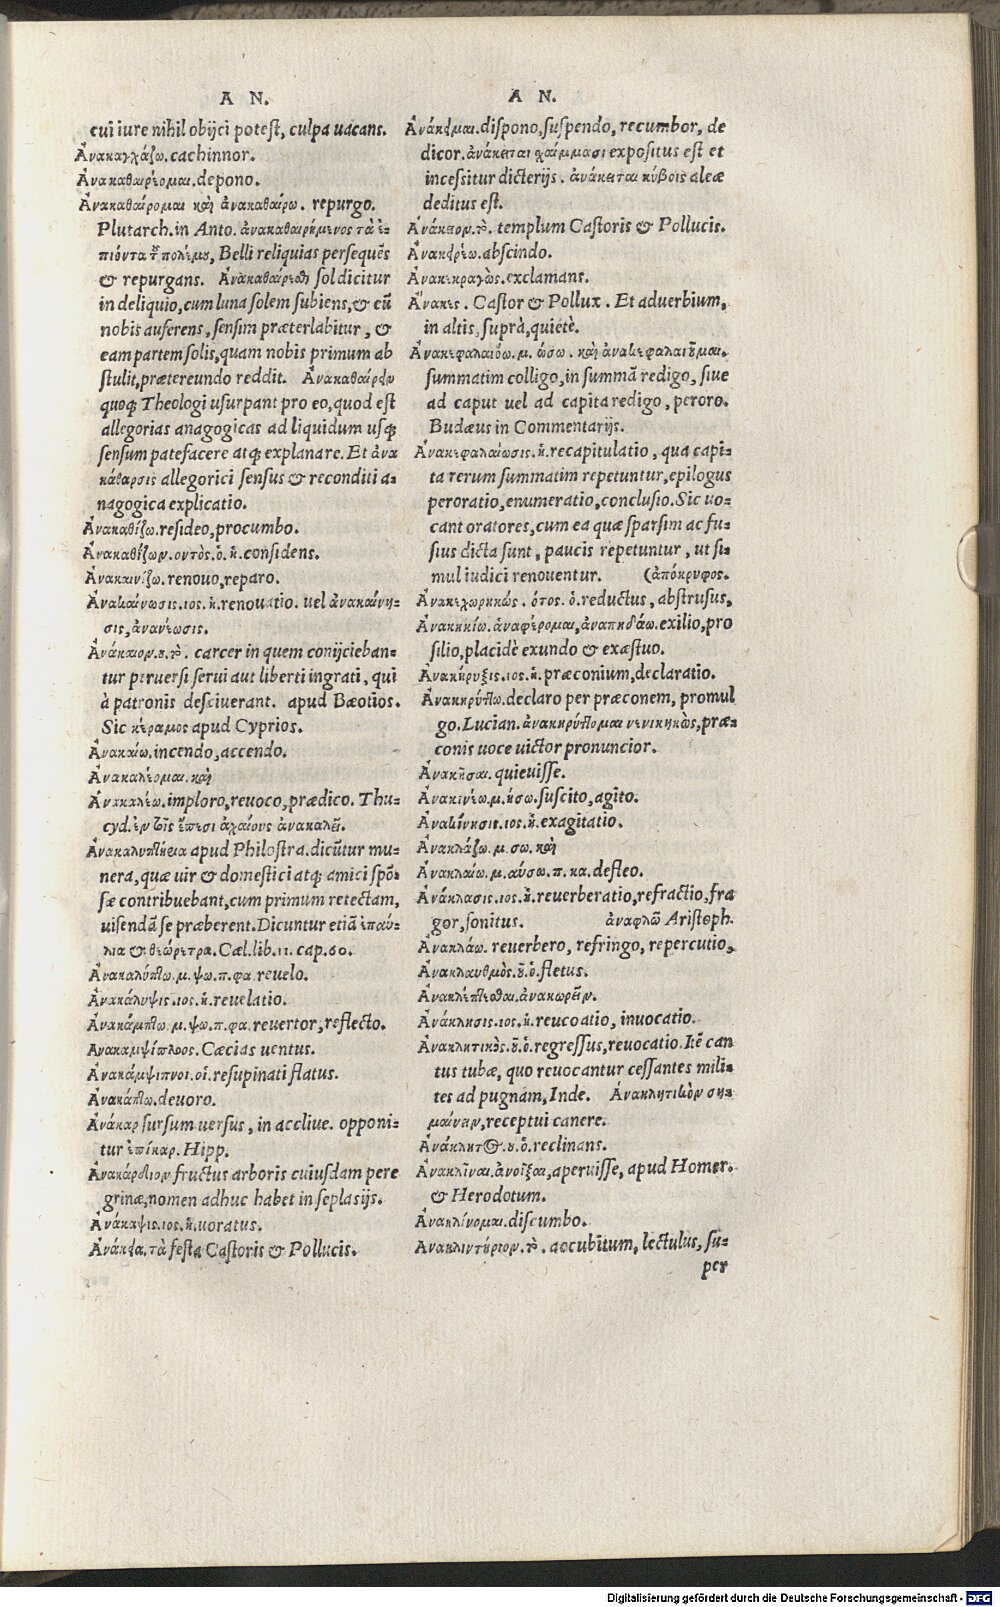 A N.
cui iure nihil obijci potest, culpa uacans.
Ἀνακαγχάζω. cachinnor.
Ἀνακαθαιρέομαι. depono.
Ἀνακαθαίρομαι καὶ ἀνακαθαίρω. repurgo.
Plutarch. in Anto. ἀνακαθαιρόμενος τὰ ἐ-
πιόντα τ πολέμου, Belli reliquias persequẽs
& repurgans. Ἀνακαθαίρεσθαι sol dicitur
in deliquio, cum luna solem subiens, & cũ
nobis auferens, sensim præterlabitur, &
eam partem solis, quam nobis primum ab
stulit, prætereundo reddit. Ἀνακαθαίρειν
quoq; Theologi usurpant pro eo, quod est
allegorias anagogicas ad liquidum usq;
sensum patefacere atq; explanare. Et ἀνα
κάθαρσις allegorici sensus & reconditi a-
nagogica explicatio.
Ἀνακαθίζω. resideo, procumbo.
Ἀνακαθίζων. οντος. ὁ. ἡ. considens.
Ἀνακαινίζω. renouo, reparo.
Ἀνακαίνωσις. ιος. ἡ. renouatio. uel ἀνακαίνη-
σις, ἀνανέωσις.
Ἀνάκαιον. ου. τὸ. carcer in quem conijcieban-
tur peruersi serui aut liberti ingrati, qui
à patronis desciuerant. apud Bæotios.
Sic κέραμος apud Cyprios.
Ἀνακαίω. incendo, accendo.
Ἀνακαλέομαι. καὶ
Ἀνακαλέω. imploro, reuoco, prædico. Thu-
cyd. ἐν τοῖς ἔπεσι ἀχαίους ἀνακαλεῖ.
Ἀνακαλυπτήρια apud Philostra. dicũtur mu-
nera, quæ uir & domestici atq; amici spõ-
sæ contribuebant, cum primum retectam,
uisendã se præberent. Dicuntur etiã ἐπαύ-
λια & θεώρετρα. Cæl. lib. 11. cap. 60.
Ἀνακαλύπτω. μ. ψω. π. φα. reuelo.
Ἀνακάλυψις. ιος. ἡ. reuelatio.
Ἀνακάμπτω. μ. ψω. π. φα. reuertor, reflecto.
Ἀνακαμψίπλοος. Cæcias uentus.
Ἀνακάμψιπνοι. οἱ. resupinati flatus.
Ἀνακάπτω. deuoro.
Ἀνάκαρ sursum uersus, in accliue. opponi-
tur ἐπίκαρ. Hipp.
Ἀνακάρδιον fructus arboris cuiusdam pere
grinæ, nomen adhuc habet in seplasijs.
Ἀνάκαψις. ιος. ἡ. uoratus.
Ἀνάκεια. τὰ festa Castoris & Pollucis.
A N.
Ἀνάκειμαι. dispono, suspendo, recumbor, de
dicor. ἀνάκειται γράμμασι expositus est et
incessitur dicterijs. ἀνάκειται κύβοις aleæ
deditus est.
Ἀνάκειον. τὸ. templum Castoris & Pollucis.
Ἀνακείρω. abscindo.
Ἀνακεκραγὼς. exclamans.
Ἄνακες. Castor & Pollux. Et aduerbium,
in altis, suprà, quietè.
Ἀνακεφαλαιόω. μ. ώσω. καὶ ἀνακεφαλαιοῦμαι.
summatim colligo, in summã redigo, siue
ad caput uel ad capita redigo, peroro.
Budæus in Commentarijs.
Ἀνακεφαλαίωσις. ἡ. recapitulatio, qua capi-
ta rerum summatim repetuntur, epilogus
peroratio, enumeratio, conclusio. Sic uo-
cant oratores, cum ea quæ sparsim ac fu-
sius dicta sunt, paucis repetuntur, ut si-
mul iudici renouentur. (ἀπόκρυφος.
Ἀνακεχωρηκώς. ότος. ὁ. reductus, abstrusus,
Ἀνακηκίω. ἀναφέρομαι, ἀναπηδάω. exilio, pro
silio, placidè exundo & exæstuo.
Ἀνακήρυξις. ιος. ἡ. præconium, declaratio.
Ἀνακηρύττω. declaro per præconem, promul
go. Lucian. ἀνακηρύττομαι νενικηκὼς, præ-
conis uoce uictor pronuncior.
Ἀνακῆσαι. quieuisse.
Ἀνακινέω. μ. ήσω. suscito, agito.
Ἀνακίνησις. ιος. ἡ. exagitatio.
Ἀνακλάζω. μ. σω. καὶ
Ἀνακλαίω. μ. αύσω. π. κα. defleo.
Ἀνάκλασις. ιος. ἡ. reuerberatio, refractio, fra
gor, sonitus. ἀναφλῶ Aristoph.
Ἀνακλάω. reuerbero, refringo, repercutio,
Ἀνακλαυθμὸς. οῦ. ὁ. fletus.
Ἀνακλέπτεσθαι. ἀνακωρεῖν.
Ἀνάκλησις. ιος. ἡ. reucoatio, inuocatio.
Ἀνακλητικὸς. οῦ. ὁ. regressus, reuocatio. Itẽ can
tus tubæ, quo reuocantur cessantes mili-
tes ad pugnam, Inde. Ἀνακλητικὸν ση-
μαίνειν, receptui canere.
Ἀνάκλητος. ου. ὁ. reclinans.
Ἀνακλῖναι. ἀνοῖξαι, aperuisse, apud Homer.
& Herodotum.
Ἀνακλίνομαι. discumbo.
Ἀνακλιντήριον. τὸ. accubitum, lectulus, su-
per
Digitalisierung gefördert durch die Deutsche Forschungsgemeinschaft - DFG